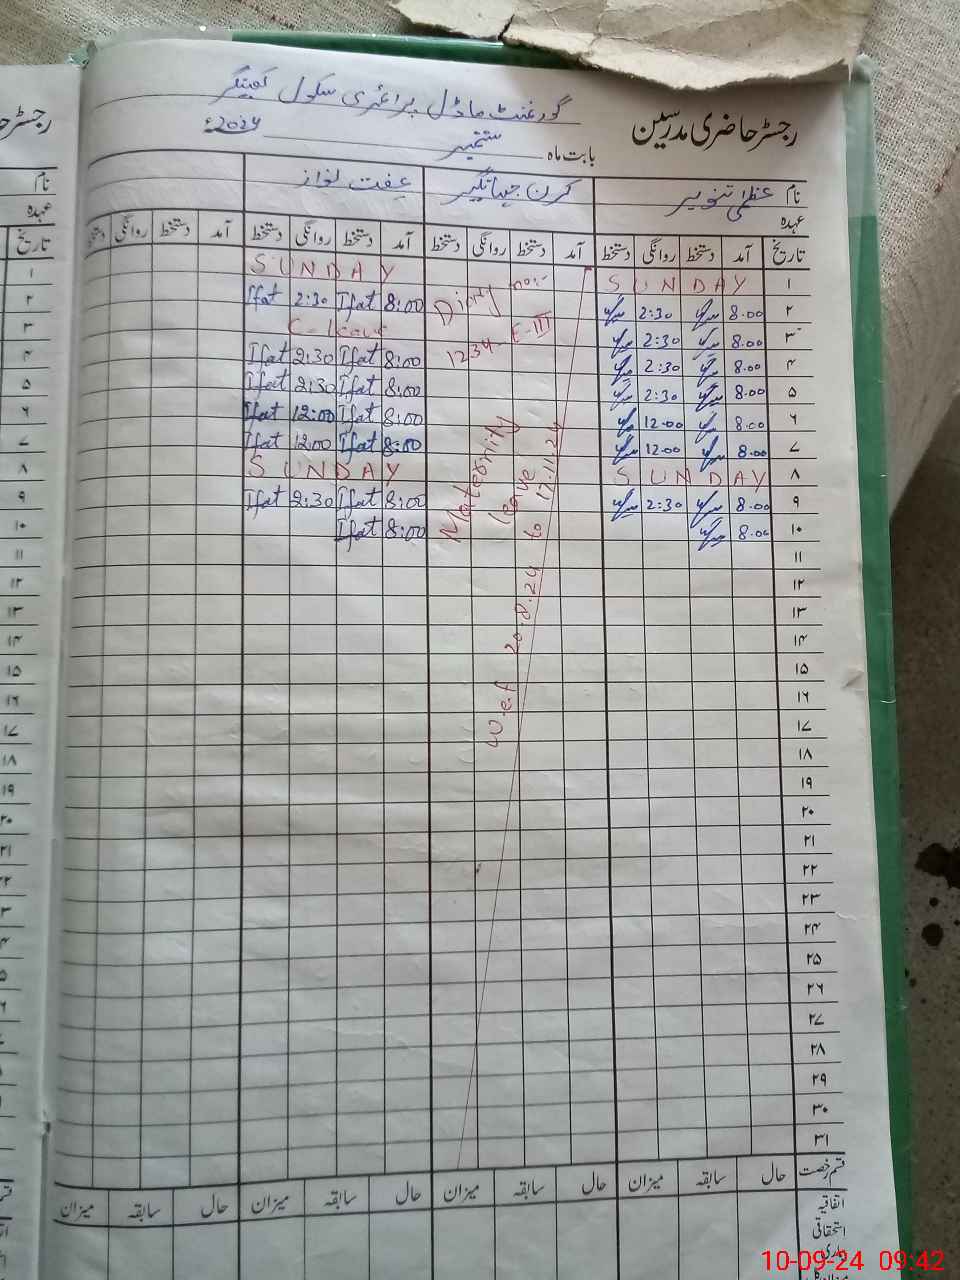 گورنمنٹ ماڈل پرائمری سکول
رجسٹر حاضری مدرسین
بابت ماہ ستمبر 2024ء
نام عظمیٰ تنویر کرن جہانگیر عفت نواز
عہدہ
تاریخ آمد دستخط روانگی دستخط آمد دستخط روانگی دستخط آمد دستخط روانگی دستخط آمد دستخط روانگی دستخط
۱ SUNDAY SUNDAY
۲ 8.00 2:30 Diary no:- 8:00 Ifat 2:30 Ifat
۳ 8.00 2:30 1234-E-III C-leave
۴ 8.00 2:30 8:00 Ifat 2:30 Ifat
۵ 8.00 2:30 8:00 Ifat 2:30 Ifat
۶ 8.00 12.00 8:00 Ifat 12:00 Ifat
۷ 8.00 12.00 8:00 Ifat 12:00 Ifat
۸ SUNDAY SUNDAY
۹ 8.00 2:30 8:00 Ifat 2:30 Ifat
۱۰ 8.00 8:00 Ifat
Maternity
leave
w.e.f 20.8.24 to 17.11.24
۱۱
۱۲
۱۳
۱۴
۱۵
۱۶
۱۷
۱۸
۱۹
۲۰
۲۱
۲۲
۲۳
۲۴
۲۵
۲۶
۲۷
۲۸
۲۹
۳۰
۳۱
قسم رخصت حال سابقہ میزان حال سابقہ میزان حال سابقہ میزان حال سابقہ میزان
اتفاقیہ
استحقاقی
بیماری
10-09-24 09:42